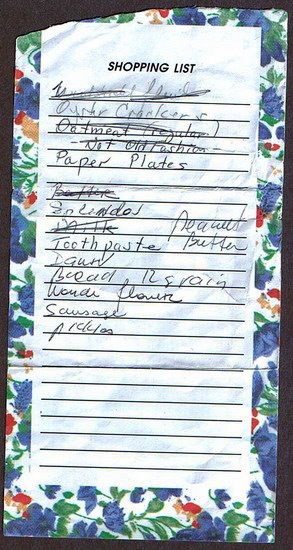 SHOPPING LIST
Oyster Crackers
Oatmeat (regular)
- Not Old Fashion -
Paper Plates
Butter
Splenda
Milk Peanut
Toothpaste Butter
Dawn
Bread 12 grain
Sausage
pickles